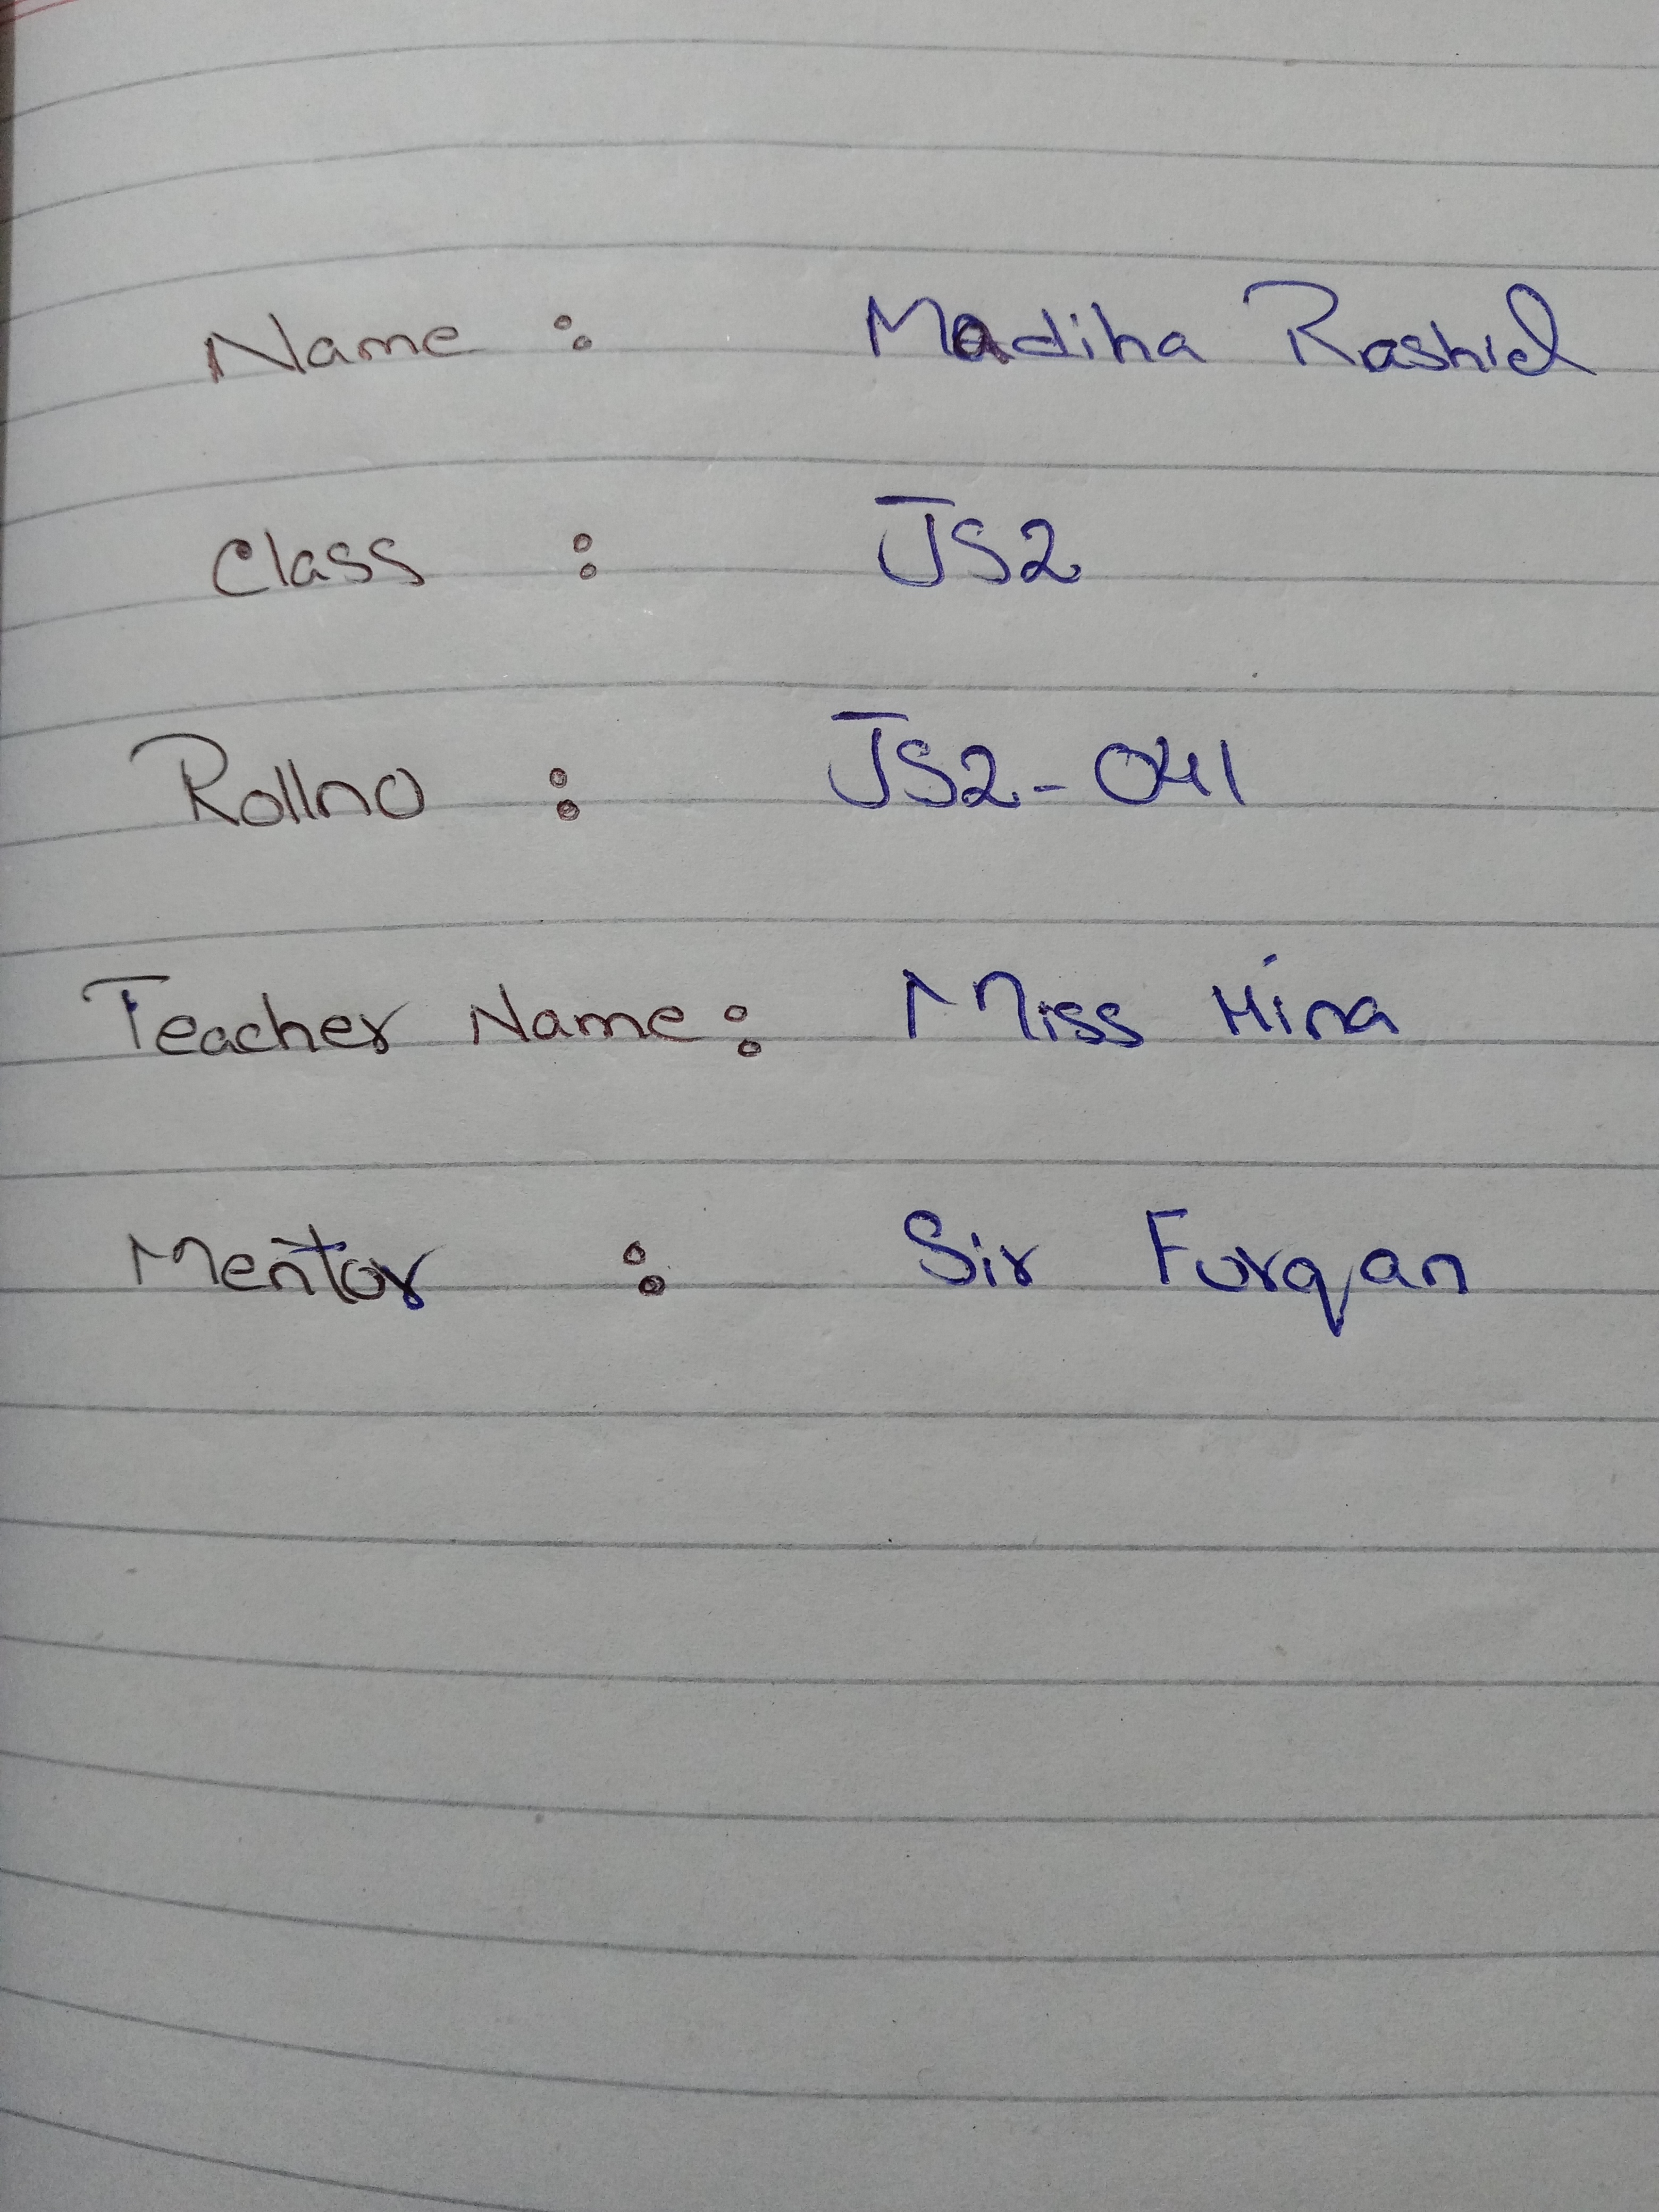 Name : Madiha Rashid
Class : JS2
Rollno : JS2-041
Teacher Name : Miss Hina
Mentor : Sir Furqan